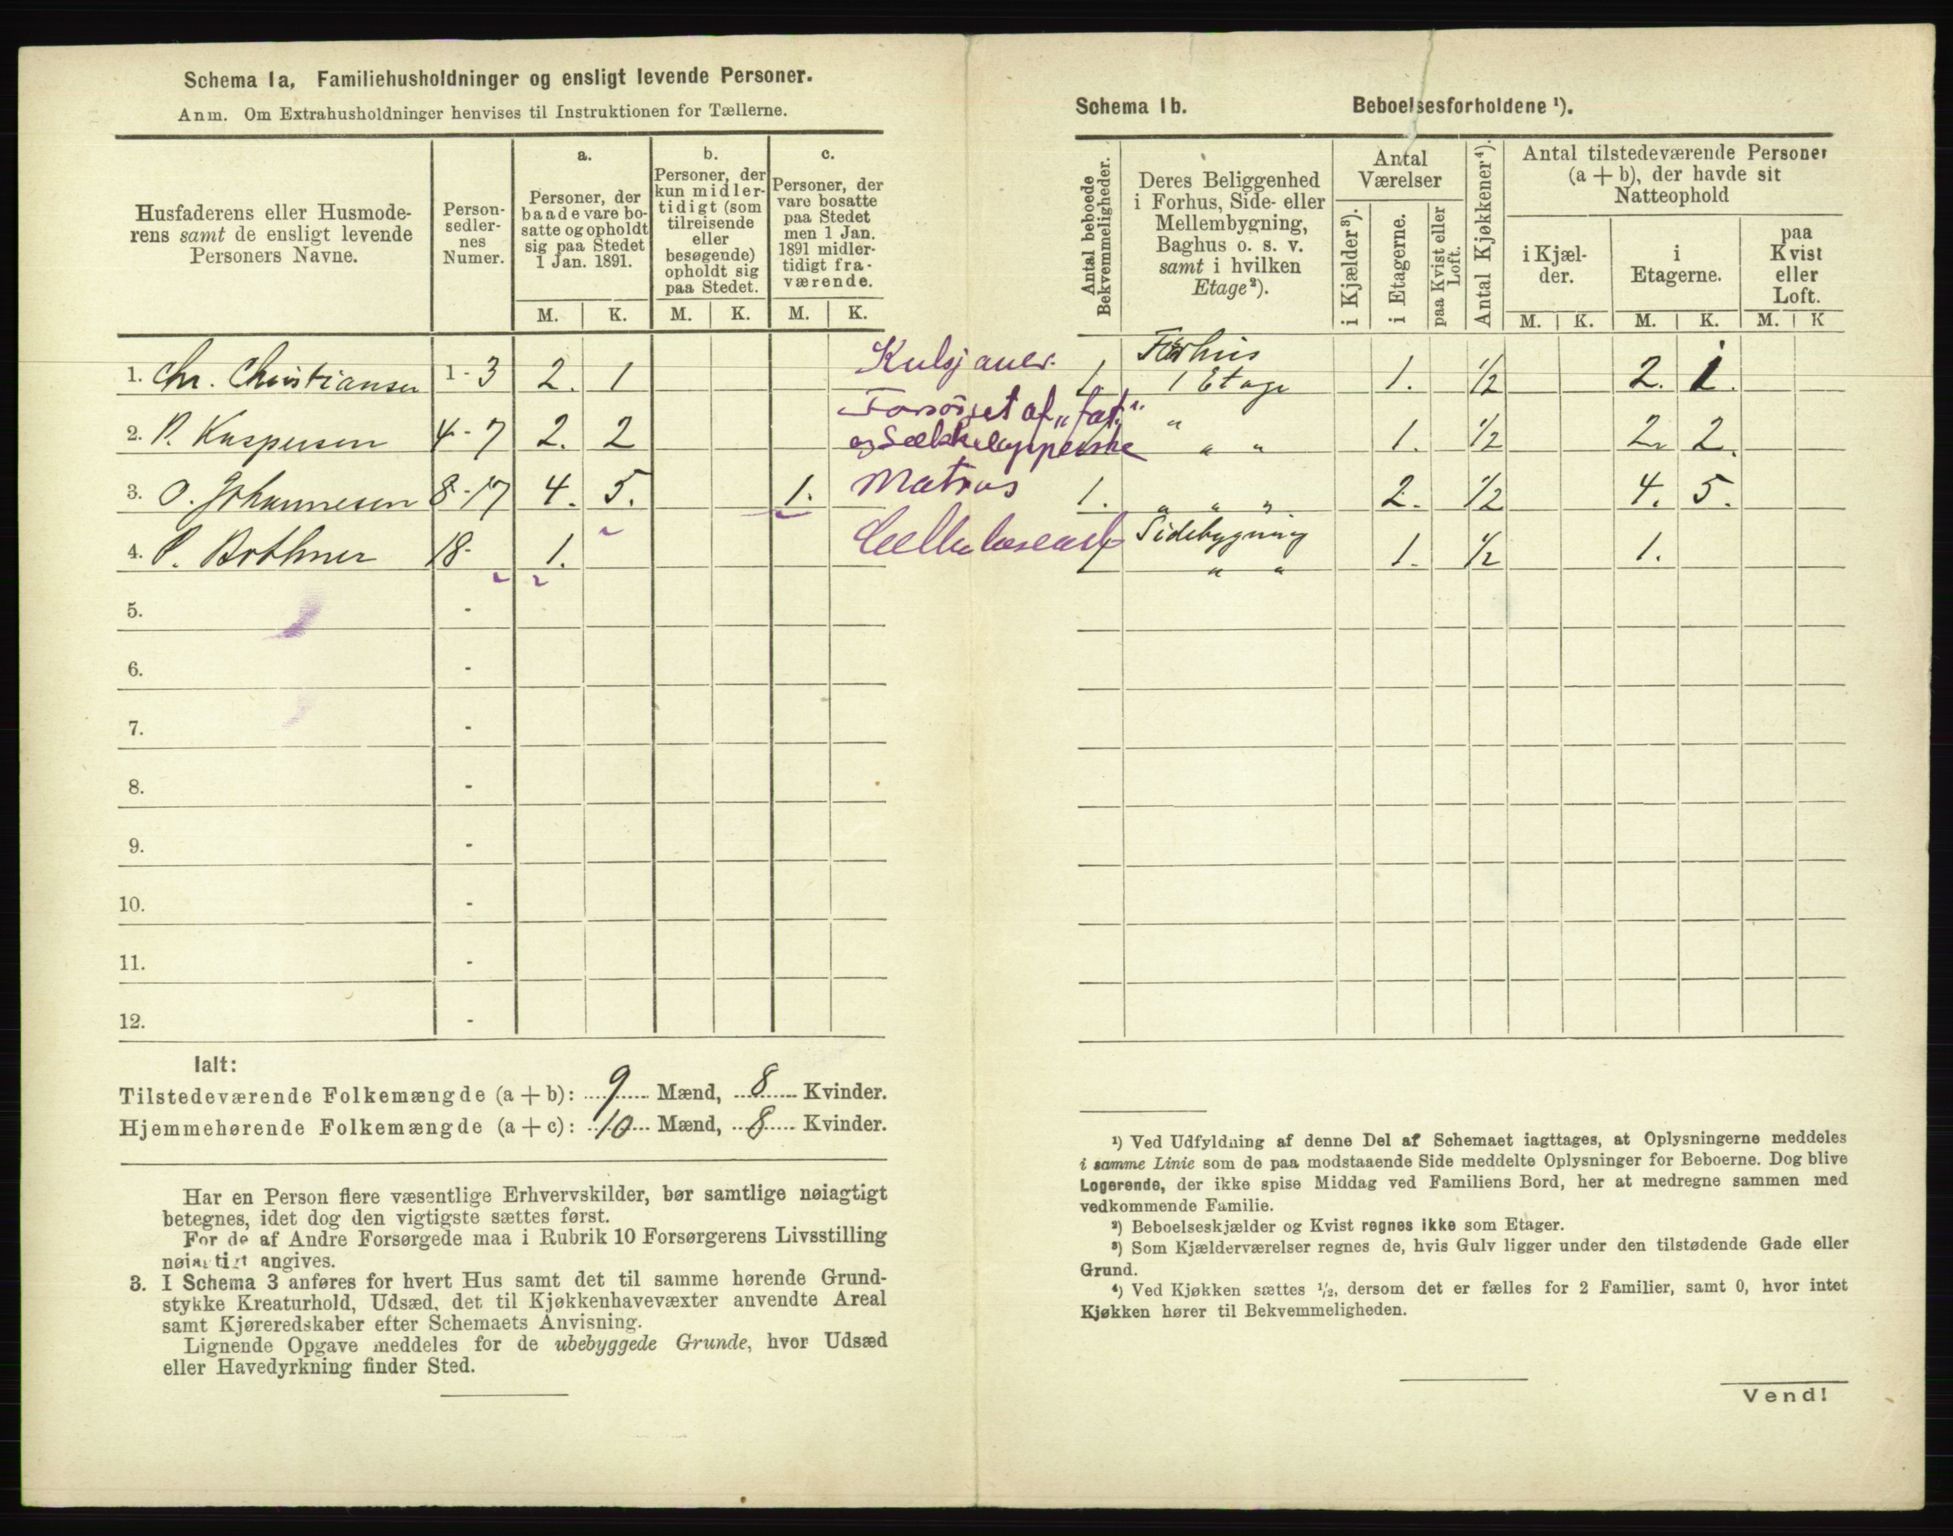 Schema 1a, Familiehusholdninger og ensligt levende Personer.
Anm. Om Extrahusholdninger henvises til Instruktionen for Tællerne.
Husfaderens eller Husmode-
rens samt de ensligt levende
Personers Navne.
Person-
sedler-
nes
Numer.
a.
Personer, der
baade vare bo-
satte og opholdt
sig paa Stedet
1 Jan. 1891.
b.
Personer, der
kun midler-
tidigt (som
tilreisende
eller
besøgende)
opholdt sig
paa Stedet.
c.
Personer, der
vare bosatte
paa Stedet
men 1 Jan.
1891 midler-
tidigt fra-
værende.
M. K. M. K. M. K.
1. Chr. Christiansen 1 - 3 2. 1 Kulsjauer.
2. P. Kaspersen 4 - 7 2. 2 Forsörget af „fat.“
og
3. O. Johannesen 8 - 17 4. 5. 1. Matros
4. P. Bothner 18 - 1.
5. -
6. -
7. -
8. -
9. -
10. -
11. -
12. -
Ialt:
Tilstedeværende Folkemængde (a + b): 9 Mænd, 8 Kvinder.
Hjemmehørende Folkemængde (a + c): 10 Mænd, 8 Kvinder.
Har en Person flere væsentlige Erhvervskilder, bør samtlige nøiagtigt
betegnes, idet dog den vigtigste sættes først.
For de af Andre Forsørgede maa i Rubrik 10 Forsørgerens Livsstilling
nøiagtigt angives.
3. I Schema 3 anføres for hvert Hus samt det til samme hørende Grund-
stykke Kreaturhold, Udsæd, det til Kjøkkenhavevæxter anvendte Areal
samt Kjøreredskaber efter Schemaets Anvisning.
Lignende Opgave meddeles for de ubebyggede Grunde, hvor Udsæd
eller Havedyrkning finder Sted.
Schema 1b. Beboelsesforholdene ¹).
Antal beboede
Bekvemmeligheder.
Deres Beliggenhed
i Forhus, Side- eller
Mellembygning,
Baghus o. s. v.
samt i hvilken
Etage²).
Antal
Værelser
i Kjælder³).
i Etagerne.
paa Kvist eller
Loft.
Antal Kjøkkener⁴).
Antal tilstedeværende Personer
(a + b), der havde sit
Natteophold
i Kjæl-
der.
i
Etagerne.
paa
Kvist
eller
Loft.
M. K. M. K. M. K
Forhus
1 1 Etage 1. ½ 2. 1.
"
" " 1. ½ 2. 2.
1. " " " 2. ½ 4. 5.
Sidebygning
" " 1. ½ 1.
¹) Ved Udfyldning af denne Del af Schemaet iagttages, at Oplysningerne meddeles
i samme Linie som de paa modstaaende Side meddelte Oplysninger for Beboerne. Dog blive
Logerende, der ikke spise Middag ved Familiens Bord, her at medregne sammen med
vedkommende Familie.
²) Beboelseskjælder og Kvist regnes ikke som Etager.
³) Som Kjælderværelser regnes de, hvis Gulv ligger under den tilstødende Gade eller
Grund.
⁴) Ved Kjøkken sættes ½, dersom det er fælles for 2 Familier, samt 0, hvor intet
Kjøkken hører til Bekvemmeligheden.
Vend!